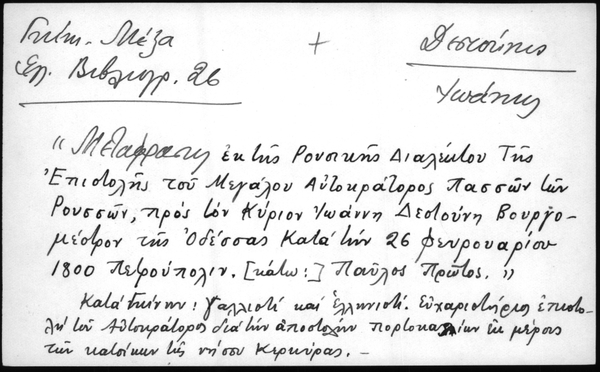 Γκίνη - Μέξα
Ελ. Βιβλιογρ. 26
+
Δεστούνης
Ἰωάννης
"Μετάφρασις ἐκ τῆς Ρουσικῆς Διαλέκτου Τῆς
Ἐπιστολῆς τοῦ Μεγάλου Αὐτοκράτορος Πασσῶν τῶν
Ρουσσῶν, πρὸς τὸν Κύριον Ἰωάννη Δεστούνη Βουργο-
μέστρον τῆς Ὀδέσσας Κατὰ τὴν 26 φευρουαρίου
1800 Πετρούπολιν. [κάτω:] Παῦλος Πρῶτος. "
Κατὰ Γκίνην: Γαλλιστὶ καὶ ἑλληνιστί. Εὐχαριστήριος ἐπιστο-
λὴ τοῦ Αὐτοκράτορος διὰ τὴν ἀποστολὴν πορτοκαλίων ἐκ μέρους
τῶν κατοίκων τῆς νήσου Κερκύρας. -